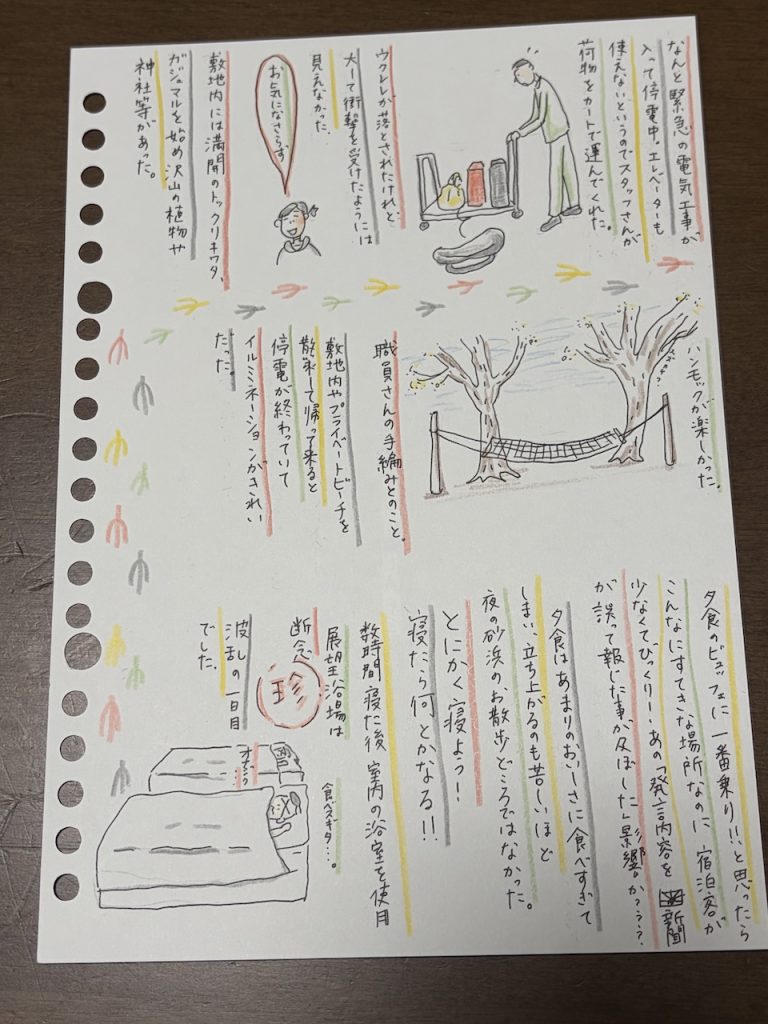 なんと緊急の電気工事が
入って停電中。エレベーターも
使えないというのでスタッフさんが
荷物をカートで運んでくれた。
ウクレレが落とされたけれど、
大して衝撃を受けたようには
見えなかった。
お気になさらず
敷地内には満開のトックリキワタ、
ガジュマルを始め沢山の植物や
神社等があった。
ハンモックが楽しかった。
職員さんの手編みとのこと。
敷地内やプライベートビーチを
散歩して帰って来ると
停電が終わっていて
イルミネーションがきれい
だった。
夕食のビュッフェに一番乗り!!と思ったら
こんなにすてきな場所なのに宿泊客が
少なくてびっくり…あの「発言内容を 新聞
が誤って報じた事が及ぼした」影響か???
夕食はあまりのおいしさに食べすぎて
しまい、立ち上がるのも苦しいほど
夜の砂浜のお散歩どころではなかった。
とにかく寝よう!
寝たら何とかなる!!
数時間寝た後 室内の浴室を使用
展望浴場は
断念
珍
波乱の一日目
でした。
食べスギタ…。